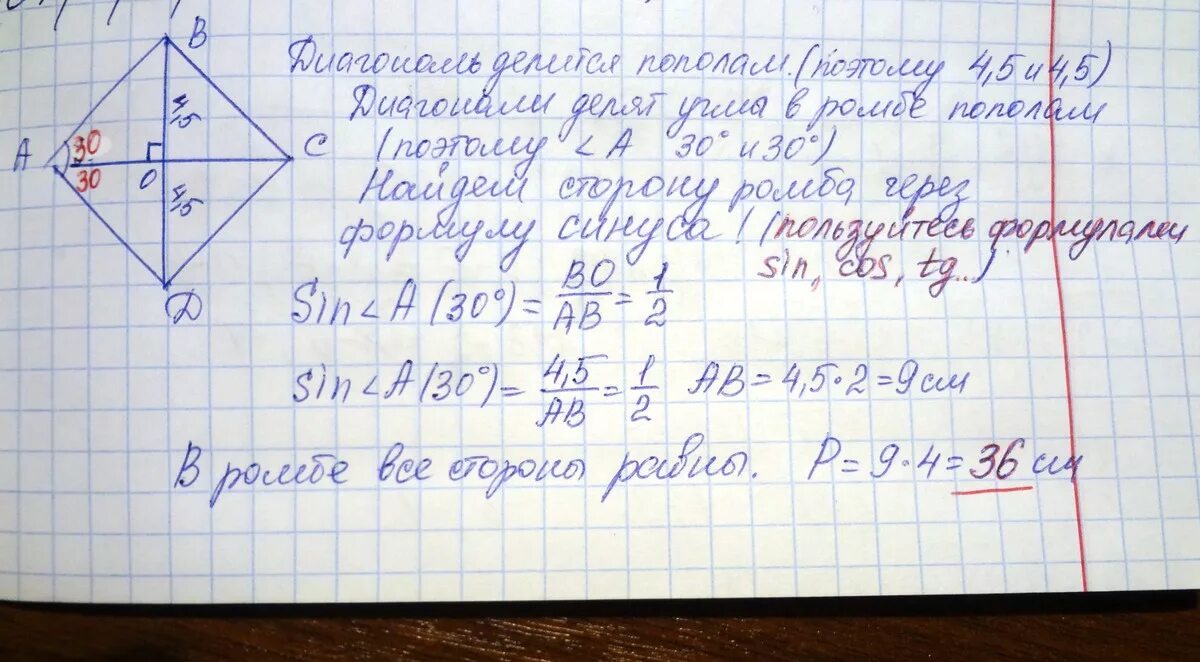 B
Диагональ делится пополам. (поэтому 4,5 и 4,5)
4,5
Диагонали делят угла в ромбе пополам
A 30 C
(поэтому <A 30° и 30°)
30 O
4,5
Найдем сторону ромба через
формулу синуса! (пользуйтесь формулами
sin, cos, tg..)
D
Sin<A (30°) = BO/AB = 1/2
sin<A (30°) = 4,5/AB = 1/2 AB = 4,5·2 = 9 см
В ромбе все стороны равны. P = 9·4 = 36 см